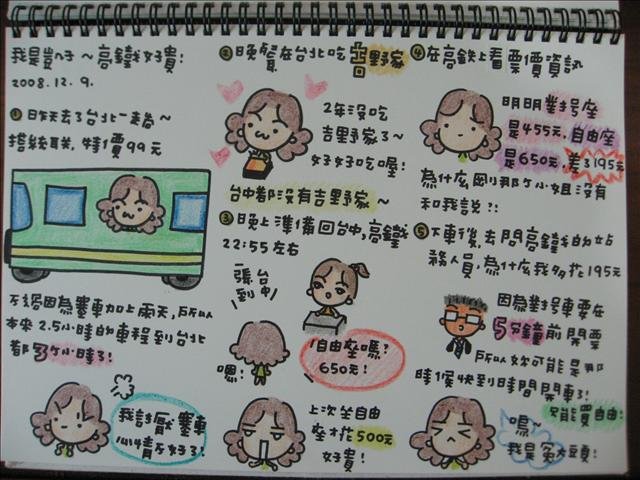 我是豈ㄟ子~高鐵好貴!
2008.12.9.
①昨天去了台北一趟~
搭統聯,特價99元
不過因為塞車加上雨天,所以
本來2.5小時的車程到台北
都3個小時了!
我討厭塞車
心情不好了!
②晚餐在台北吃吉野家
2年沒吃
吉野家了~
好好吃喔!
台中都沒有吉野家~
③晚上準備回台中,高鐵
22:55左右
一張到台中
嗯!
自由座嗎?
650元!
上次坐自由
座才花500元
好貴!
④在高鉄上看票價資訊
明明對號座
是455元,自由座
是650元,差195元
為什么剛那個小姐沒有
和我說?!
⑤下車後,去問高鐵的站
務人員,為什么我多花195元
因為對號車要在
5分鐘前開票
所以妳可能是那
時候快到時間開車了!
只能買自由!
嗚~
我是冤大頭!